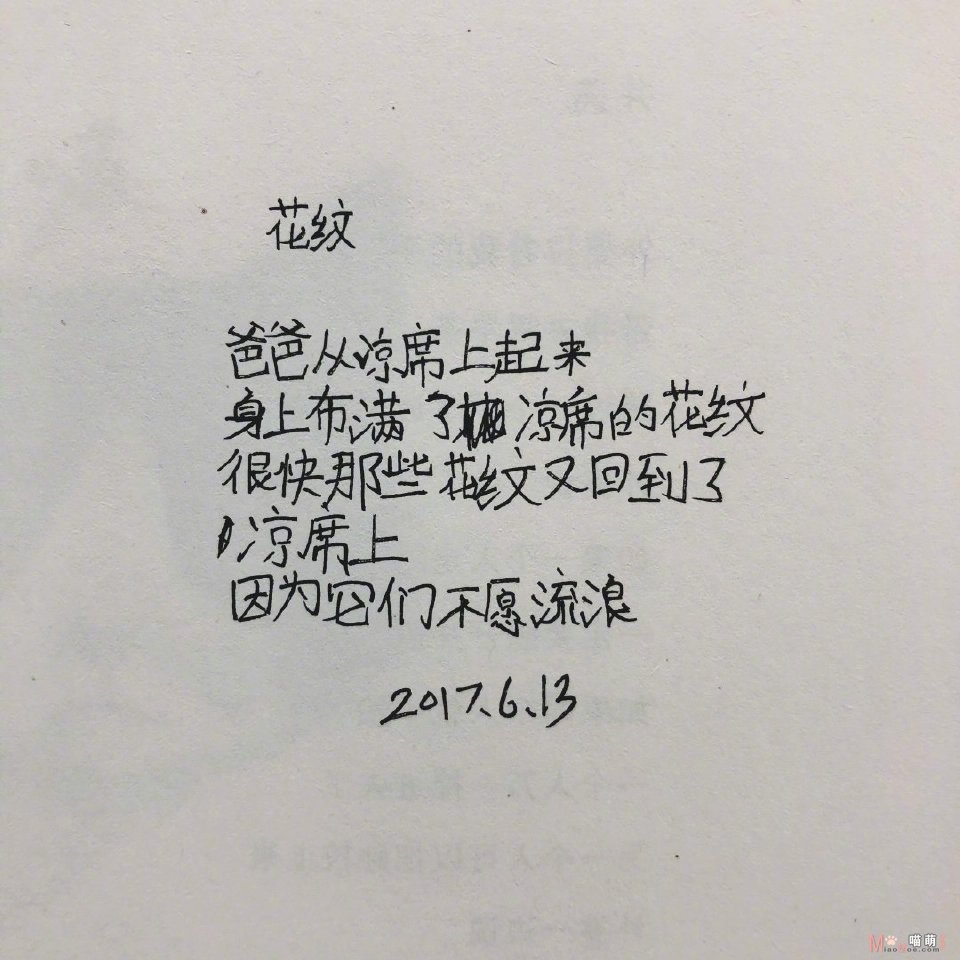 花纹
爸爸从凉席上起来
身上布满了凉席的花纹
很快那些花纹又回到了
凉席上
因为它们不愿流浪
2017.6.13
喵萌